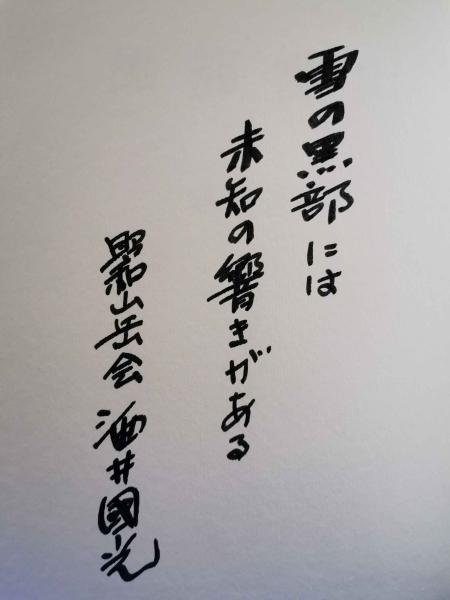 雪の黒部には
未知の響きがある
昭和山岳会 酒井國光